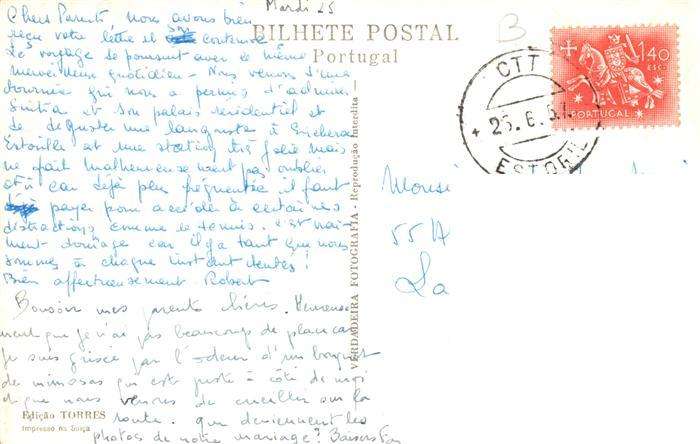 Mardi 25
BILHETE POSTAL
Portugal
B
Chers Parents, nous avons bien
reçu votre lettre et son contenu
Le voyage se poursuit avec le même
merveilleux quotidien - Nous venons d'une
tournée qui nous a permis d'admirer
Sintra et son palais résidentiel et
de déguster une langouste à
Estoril est une station très jolie mais
ne fait malheureusement pas oublier
car déjà plus fréquentée il faut
payer pour accéder à certaines
distractions comme le tennis. c'est vrai-
ment dommage car il y a tant que nous
sommes à chaque instant tentés !
Bien affectueusement. Robert
Bonsoir mes parents chéris. Heureuse
ment que je n'ai pas beaucoup de place car
je suis grisée par l'odeur d'un bouquet
de mimosas qui est juste à côté de moi
et que nous venons de cueillir sur la
route. que deviennent les
photos de notre mariage? Baisers
Edição TORRES
Impresso na Suíça
VERDADEIRA FOTOGRAFIA - Reprodução Interdita
CTT
25.6.57
ESTORIL
1$40
ESCO
PORTUGAL
Monsi
55 A
La